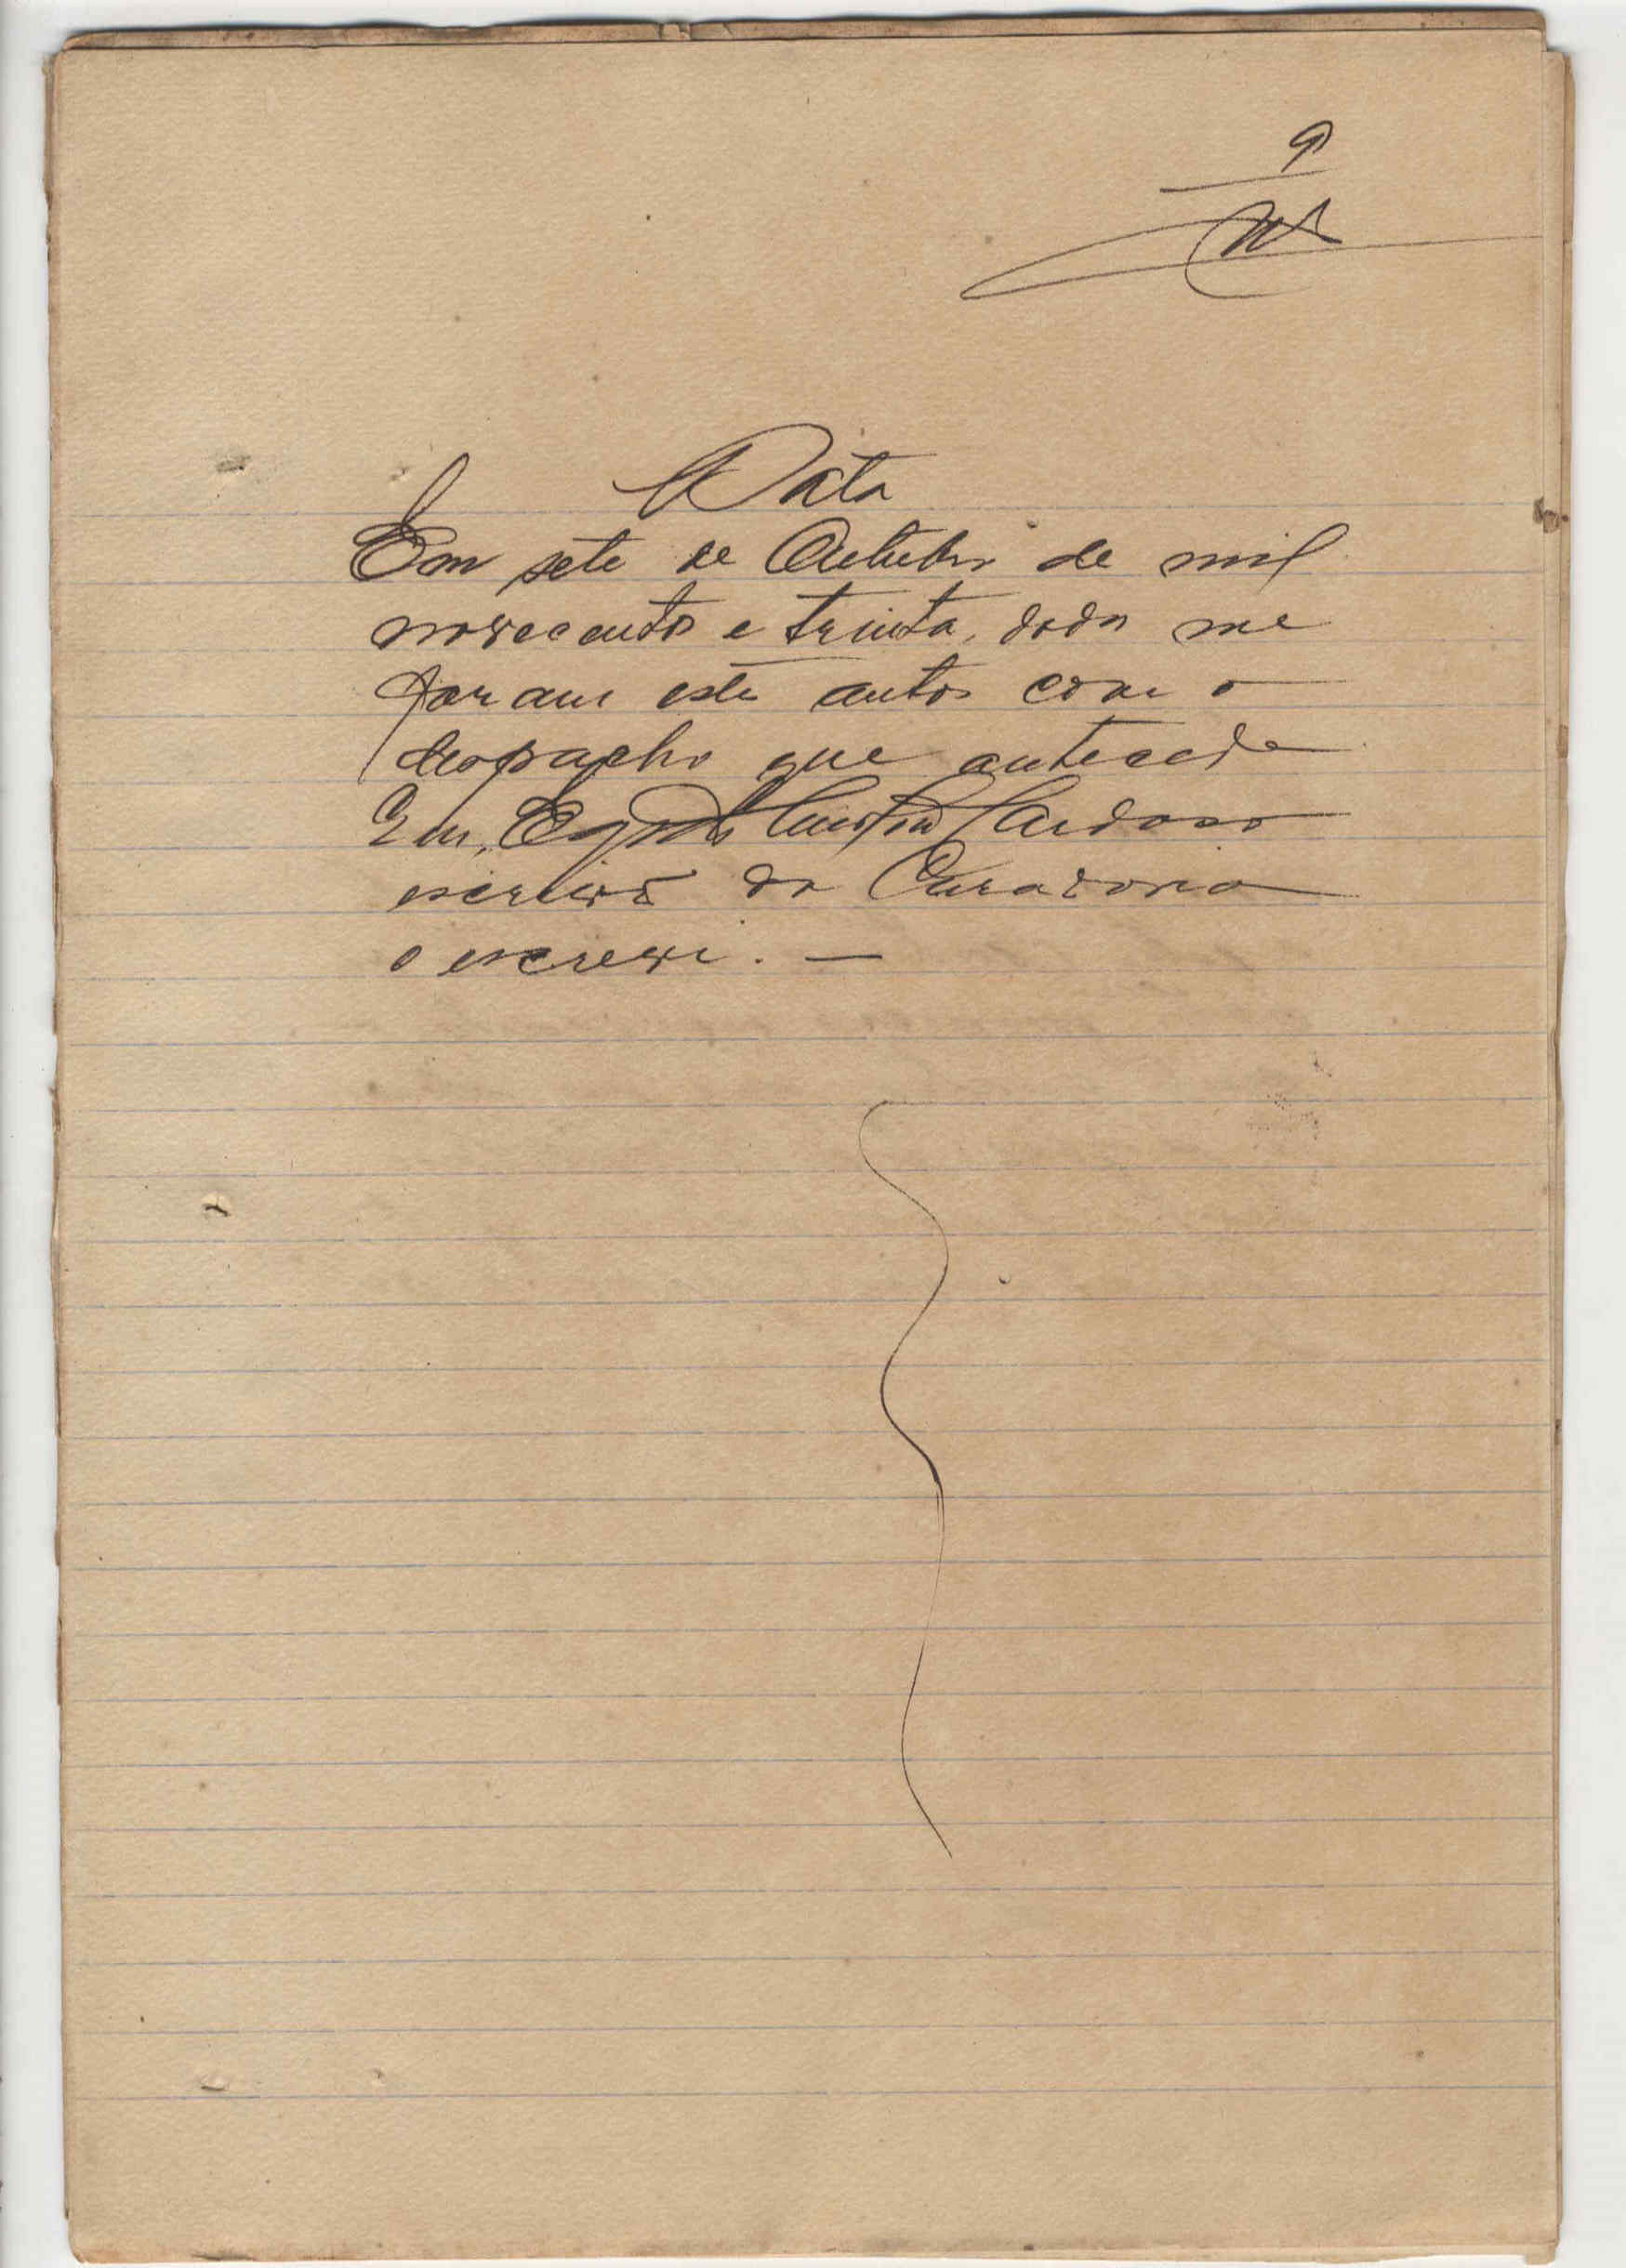 9
Data
Em sete de Outubro de mil
novecentos e trinta, dado me
foram este autos com o
despacho que antecede
Eu, Cardoso
escrivã da Curadoria
o escrevi. —